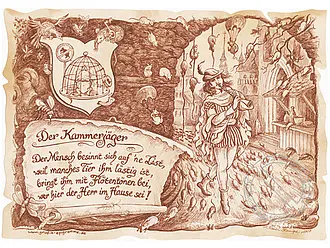 Der Kammerjäger
Der Mensch besinnt sich auf 'ne List,
weil manches Tier ihm lästig ist,
bringt ihm mit Flötentönen bei,
wer hier der Herr im Hause sei!